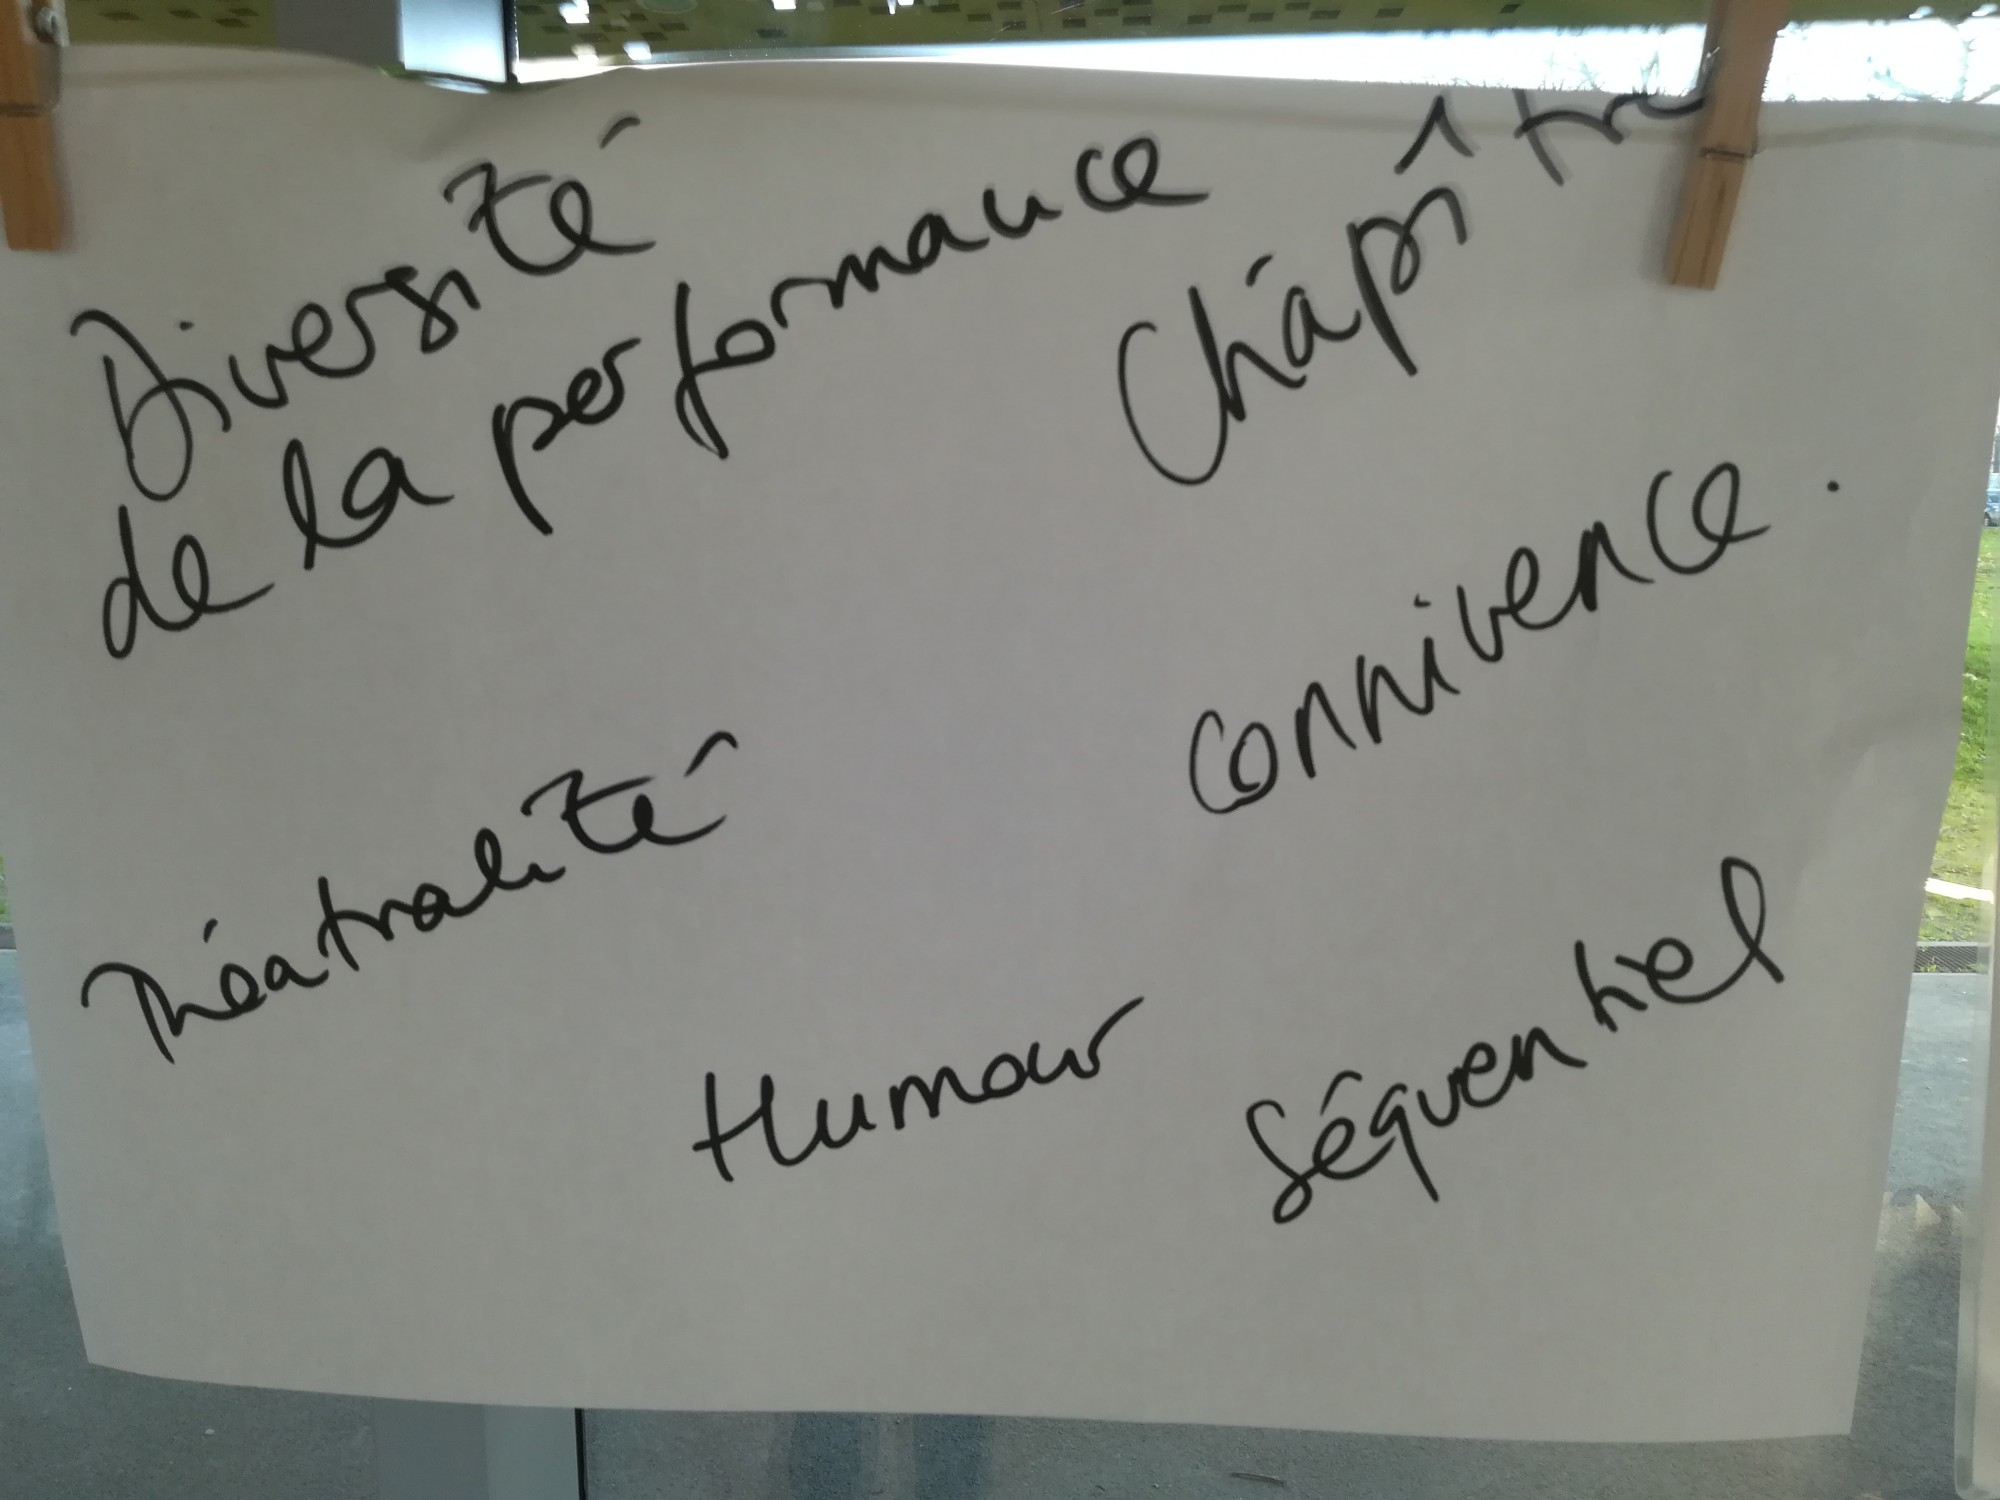 Diversité
de la performance
Chapître
connivence.
Théatralité
Humour
Séquentiel